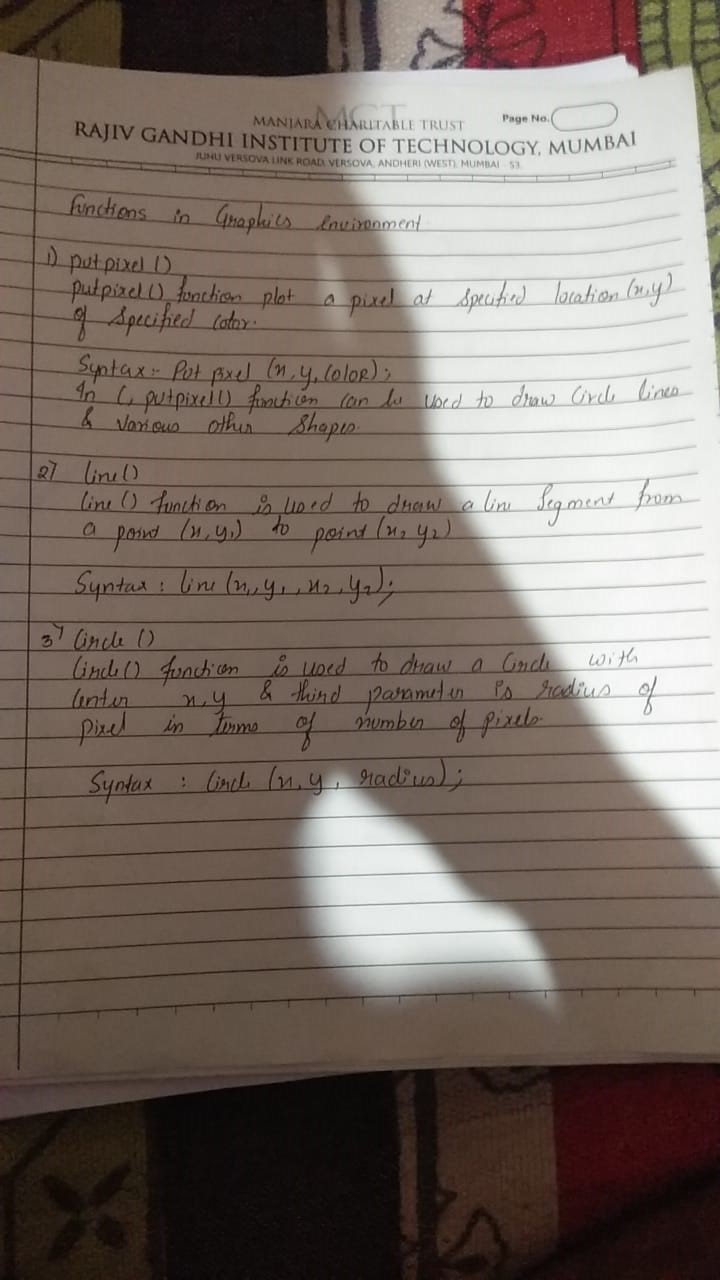 MCT
MANJARA CHARITABLE TRUST
Page No.
RAJIV GANDHI INSTITUTE OF TECHNOLOGY, MUMBAI
JUHU VERSOVA LINK ROAD, VERSOVA, ANDHERI (WEST), MUMBAI - 53.
Functions in Graphics Environment
1) putpixel ()
putpixel() function plot a pixel at specified location (x,y)
of specified color.
Syntax:- Put pixel (x, y, COLOR);
In C, putpixel() function can be used to draw Circle lines
& various other shapes.
2) line()
line () function is used to draw a line segment from
a point (x, y₁) to point (x₂ y₂)
Syntax : line (x₁, y₁, x₂, y₂);
3) Circle ()
Circle() function is used to draw a Circle with
Center x, y & third parameter is radius of
pixel in terms of number of pixels.
Syntax : Circle (x, y, radius);